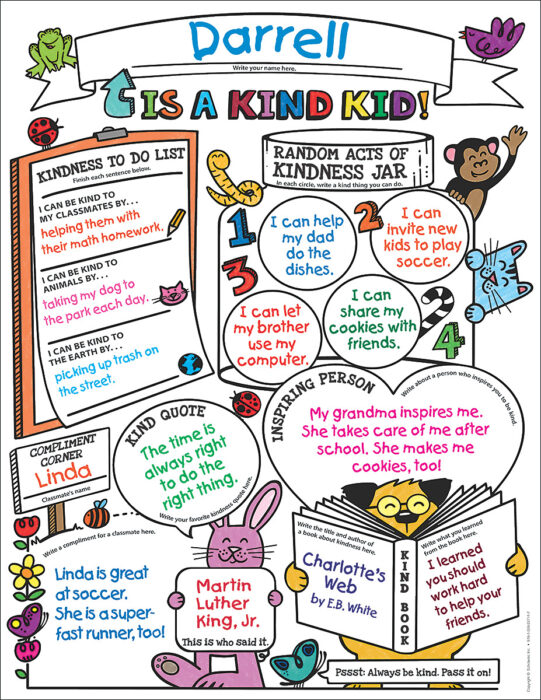 Darrell
Write your name here.
IS A KIND KID!
KINDNESS TO DO LIST
Finish each sentence below.
I CAN BE KIND TO
MY CLASSMATES BY...
helping them with
their math homework.
I CAN BE KIND TO
ANIMALS BY...
taking my dog to
the park each day.
I CAN BE KIND TO
THE EARTH BY...
picking up trash on
the street.
RANDOM ACTS OF
KINDNESS JAR
In each circle, write a kind thing you can do.
1
I can help
my dad
do the
dishes.
2
I can
invite new
kids to play
soccer.
3
I can let
my brother
use my
computer.
I can
share my
cookies with
friends.
4
COMPLIMENT
CORNER
Linda
Classmate's name
Write a compliment for a classmate here.
Linda is great
at soccer.
She is a super-
fast runner, too!
KIND QUOTE
The time is
always right
to do the
right thing.
Write your favorite kindness quote here.
Martin
Luther
King, Jr.
This is who said it.
INSPIRING PERSON
Write about a person who inspires you to be kind.
My grandma inspires me.
She takes care of me after
school. She makes me
cookies, too!
Write the title and author of
a book about kindness here.
Charlotte's
Web
by E.B. White
KIND BOOK
Write what you learned
from the book here.
I learned
you should
work hard
to help your
friends.
Pssst: Always be kind. Pass it on!